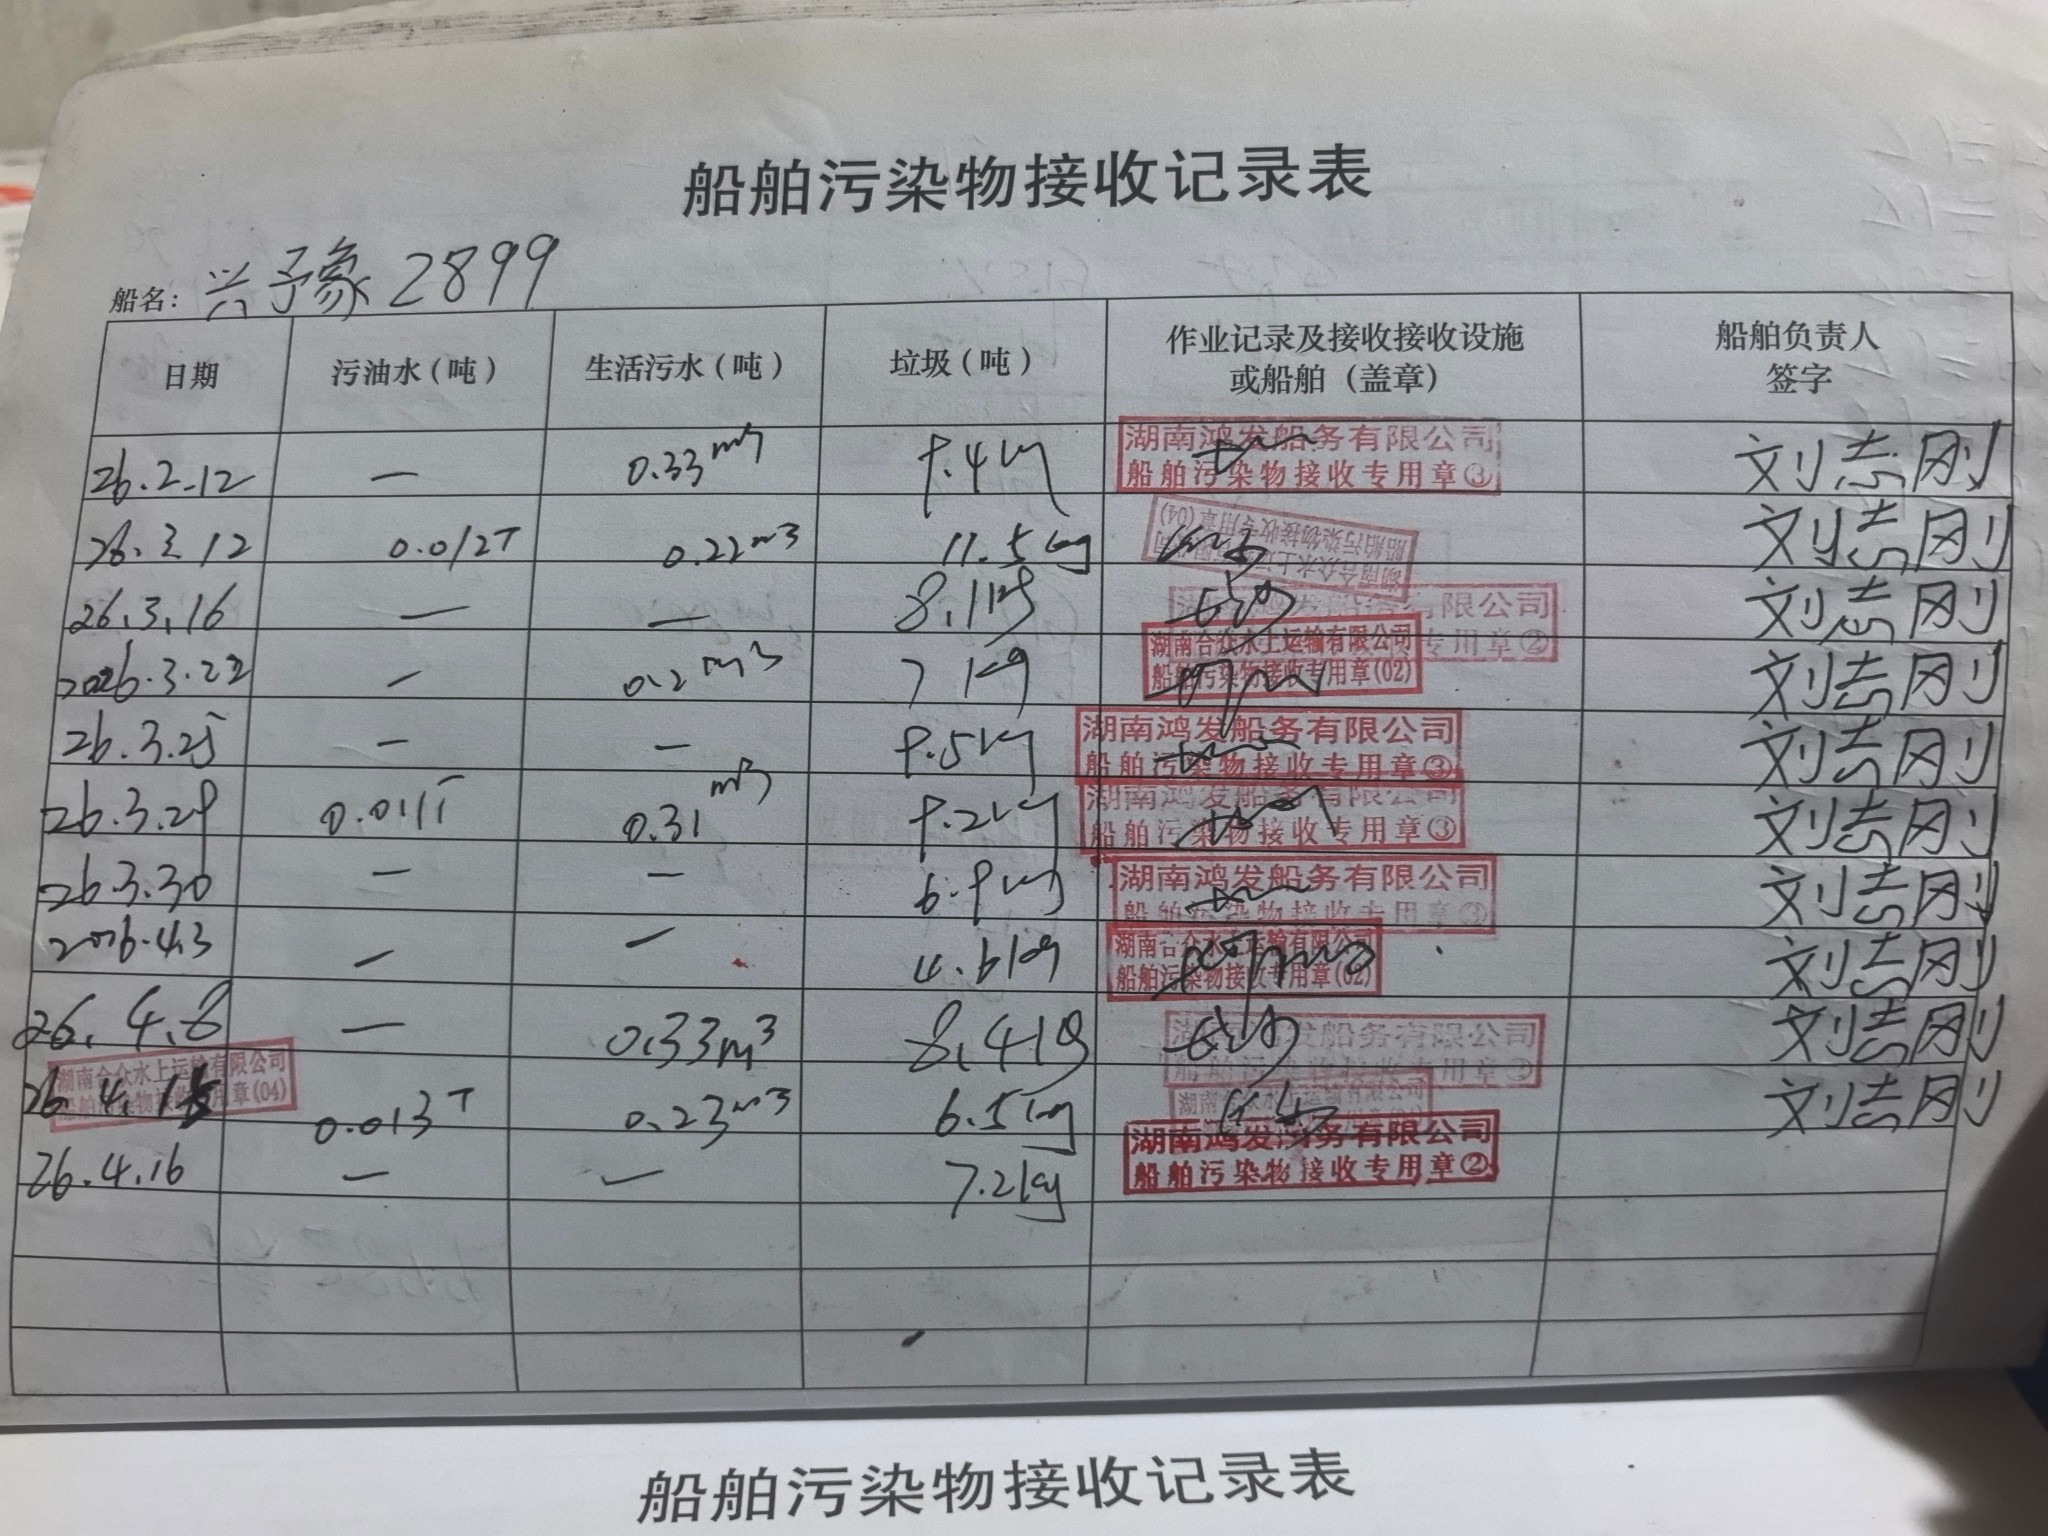 船舶污染物接收记录表
船名: 兴豫 2899
日期 污油水(吨) 生活污水(吨) 垃圾(吨) 作业记录及接收接收设施或船舶(盖章) 船舶负责人签字
26.2.12 — 0.33m3 9.4kg 湖南鸿发船务有限公司 船舶污染物接收专用章③ 刘志刚
26.3.12 0.012T 0.22m3 11.5kg 湖南合众水上运输有限公司 船舶污染物接收专用章(04) 刘志刚
26.3.16 — — 8.1kg 湖南鸿发船务有限公司 专用章② 刘志刚
2026.3.22 — 0.2m3 7kg 湖南合众水上运输有限公司 船舶污染物接收专用章(02) 刘志刚
26.3.25 — — 9.5kg 湖南鸿发船务有限公司 船舶污染物接收专用章③ 刘志刚
26.3.29 0.011T 0.31m3 9.2kg 湖南鸿发船务有限公司 船舶污染物接收专用章③ 刘志刚
26.3.30 — — 6.9kg 湖南鸿发船务有限公司 船舶污染物接收专用章③ 刘志刚
2026.4.3 — — 4.6kg 湖南合众水上运输有限公司 船舶污染物接收专用章(02) 刘志刚
26.4.8 — 0.33m3 8.4kg 湖南鸿发船务有限公司 船舶污染物接收专用章② 刘志刚
26.4.15 湖南合众水上运输有限公司 船舶污染物接收专用章(04) 0.013T 0.23m3 6.5kg 湖南合众水上运输有限公司 刘志刚
26.4.16 — — 7.2kg 湖南鸿发船务有限公司 船舶污染物接收专用章②
船舶污染物接收记录表